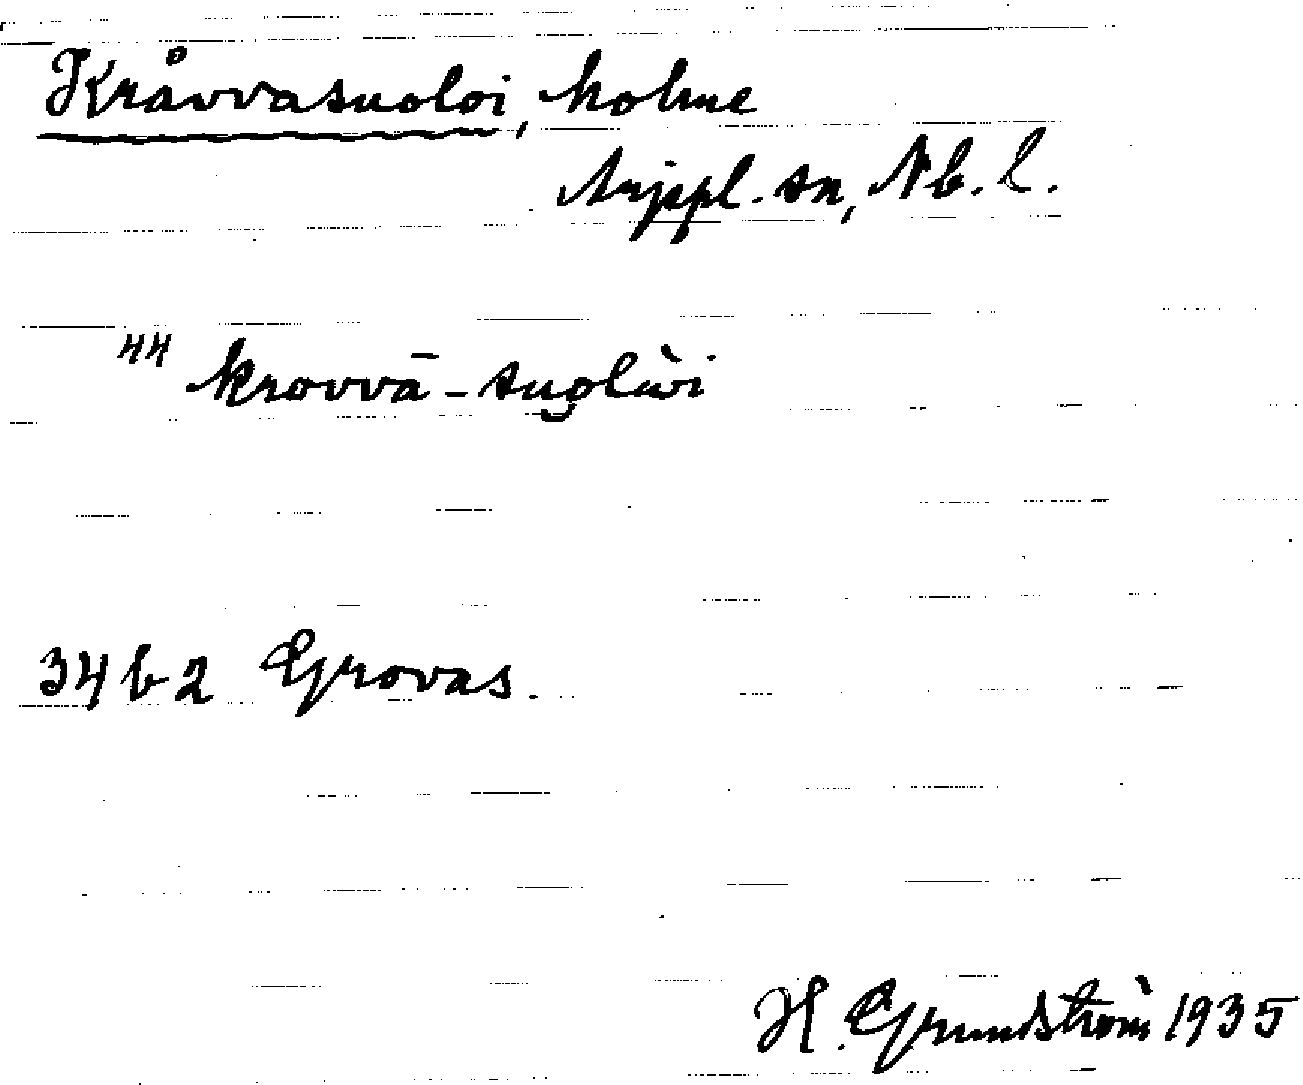 Kråvvasuoloi, holme
Arjeppl. sn, Nb. l.
44 krovvā-suo̮lui
34 b 2 Grovas.
H. Grundström 1935